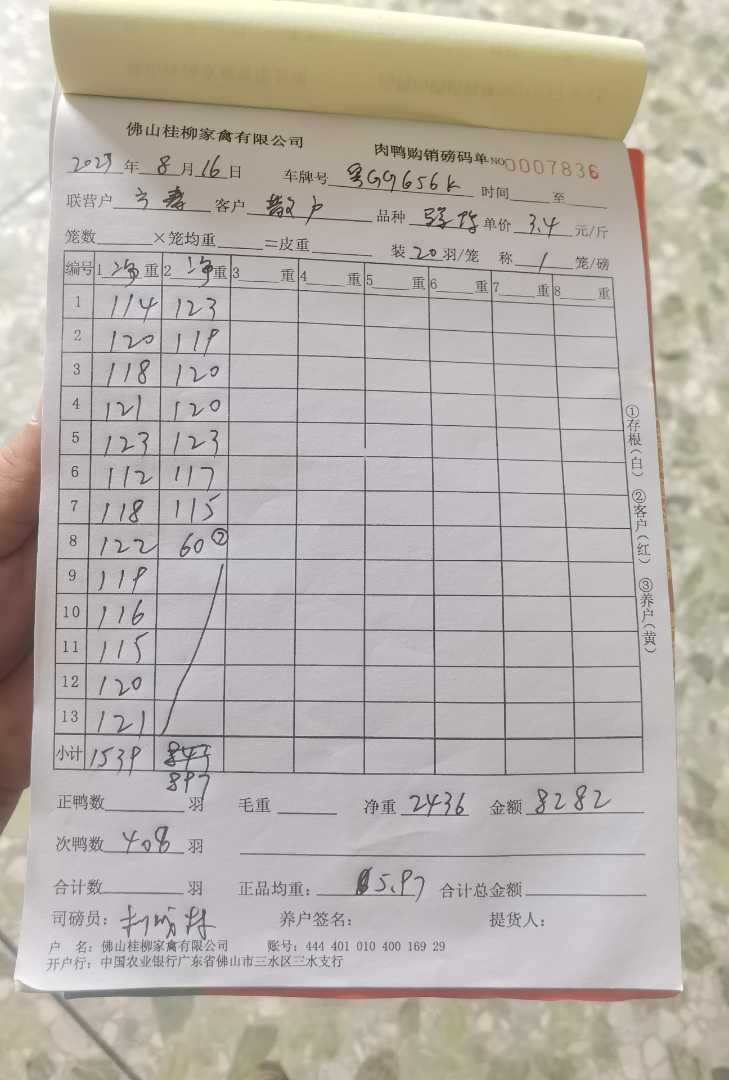 佛山桂柳家禽有限公司 肉鸭购销磅码单 NO 0007836
2025年8月16日 车牌号 粤GG656K 时间 至
联营户 客户 散户 品种 单价 3.4 元/斤
笼数 ×笼均重 =皮重 装 20 羽/笼 称 1 笼/磅
编号 1 净 重 2 净 重 3 重 4 重 5 重 6 重 7 重 8 重
1 114 123
2 120 119
3 118 120
4 121 120
5 123 123
6 112 117
7 118 115
8 122 60 ⑦
9 119
10 116
11 115
12 120
13 121
小计 1539
897
正鸭数 羽 毛重 净重 2436 金额 8282
次鸭数 408 羽
合计数 羽 正品均重: 5.97 合计总金额
司磅员: 养户签名: 提货人:
户 名: 佛山桂柳家禽有限公司 账号: 444 401 010 400 169 29
开户行: 中国农业银行广东省佛山市三水区三水支行
①存根(白) ②客户(红) ③养户(黄)